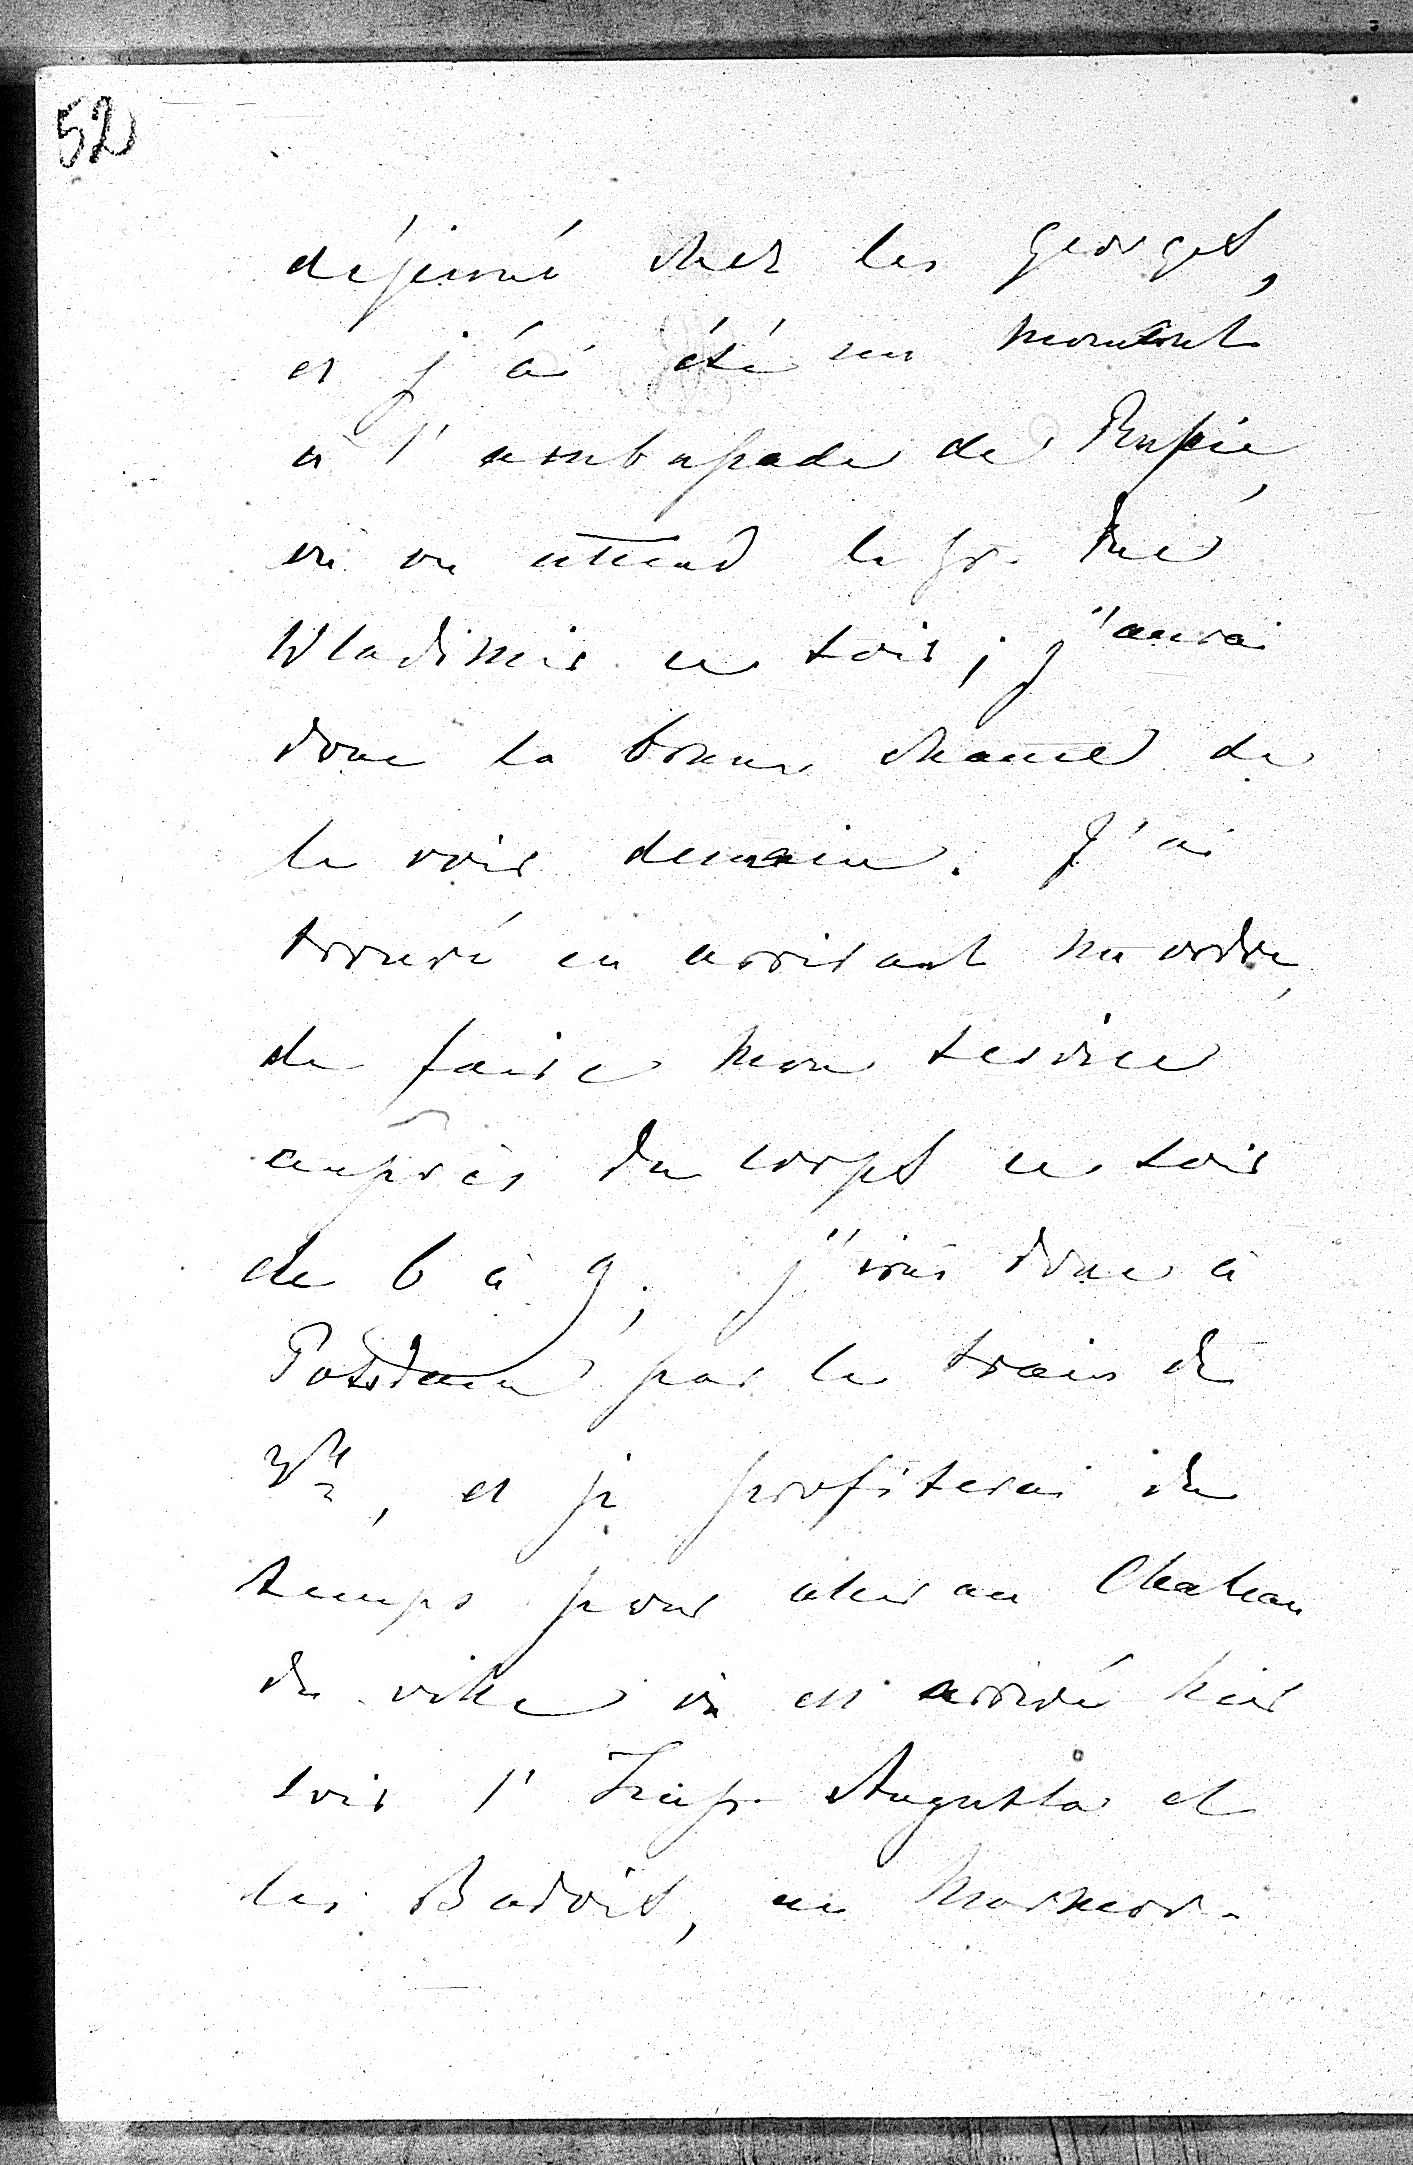 52
déjeuné chez les Georges,
et j'ai été un moment
à l'ambassade de Russie,
où on attend le Gr. Duc
Wladimir ce soir; j'aurai
donc la bonne chance de
le voir demain. J'ai
trouvé en arrivant un ordre,
de faire mon service
auprès du corps ce soir
de 6 à 9; j'irai donc à
Potsdam par le train de
3h, et je profiterai du
temps pour aller au Chateau
de ville où est arrivé hier
soir l'Imp. Augusta et
les Badois, en